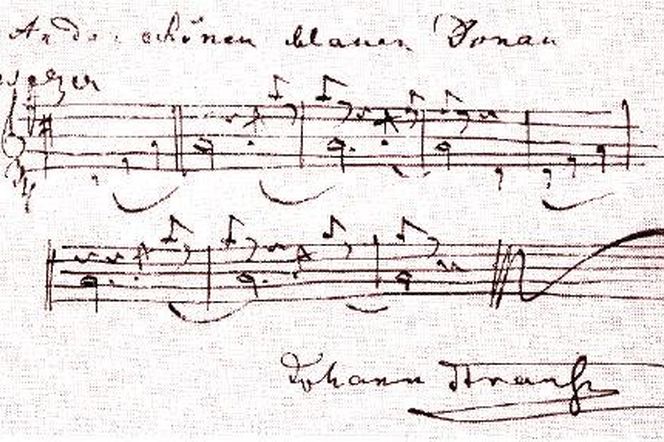 An der schönen blauen Donau
Johann Strauß